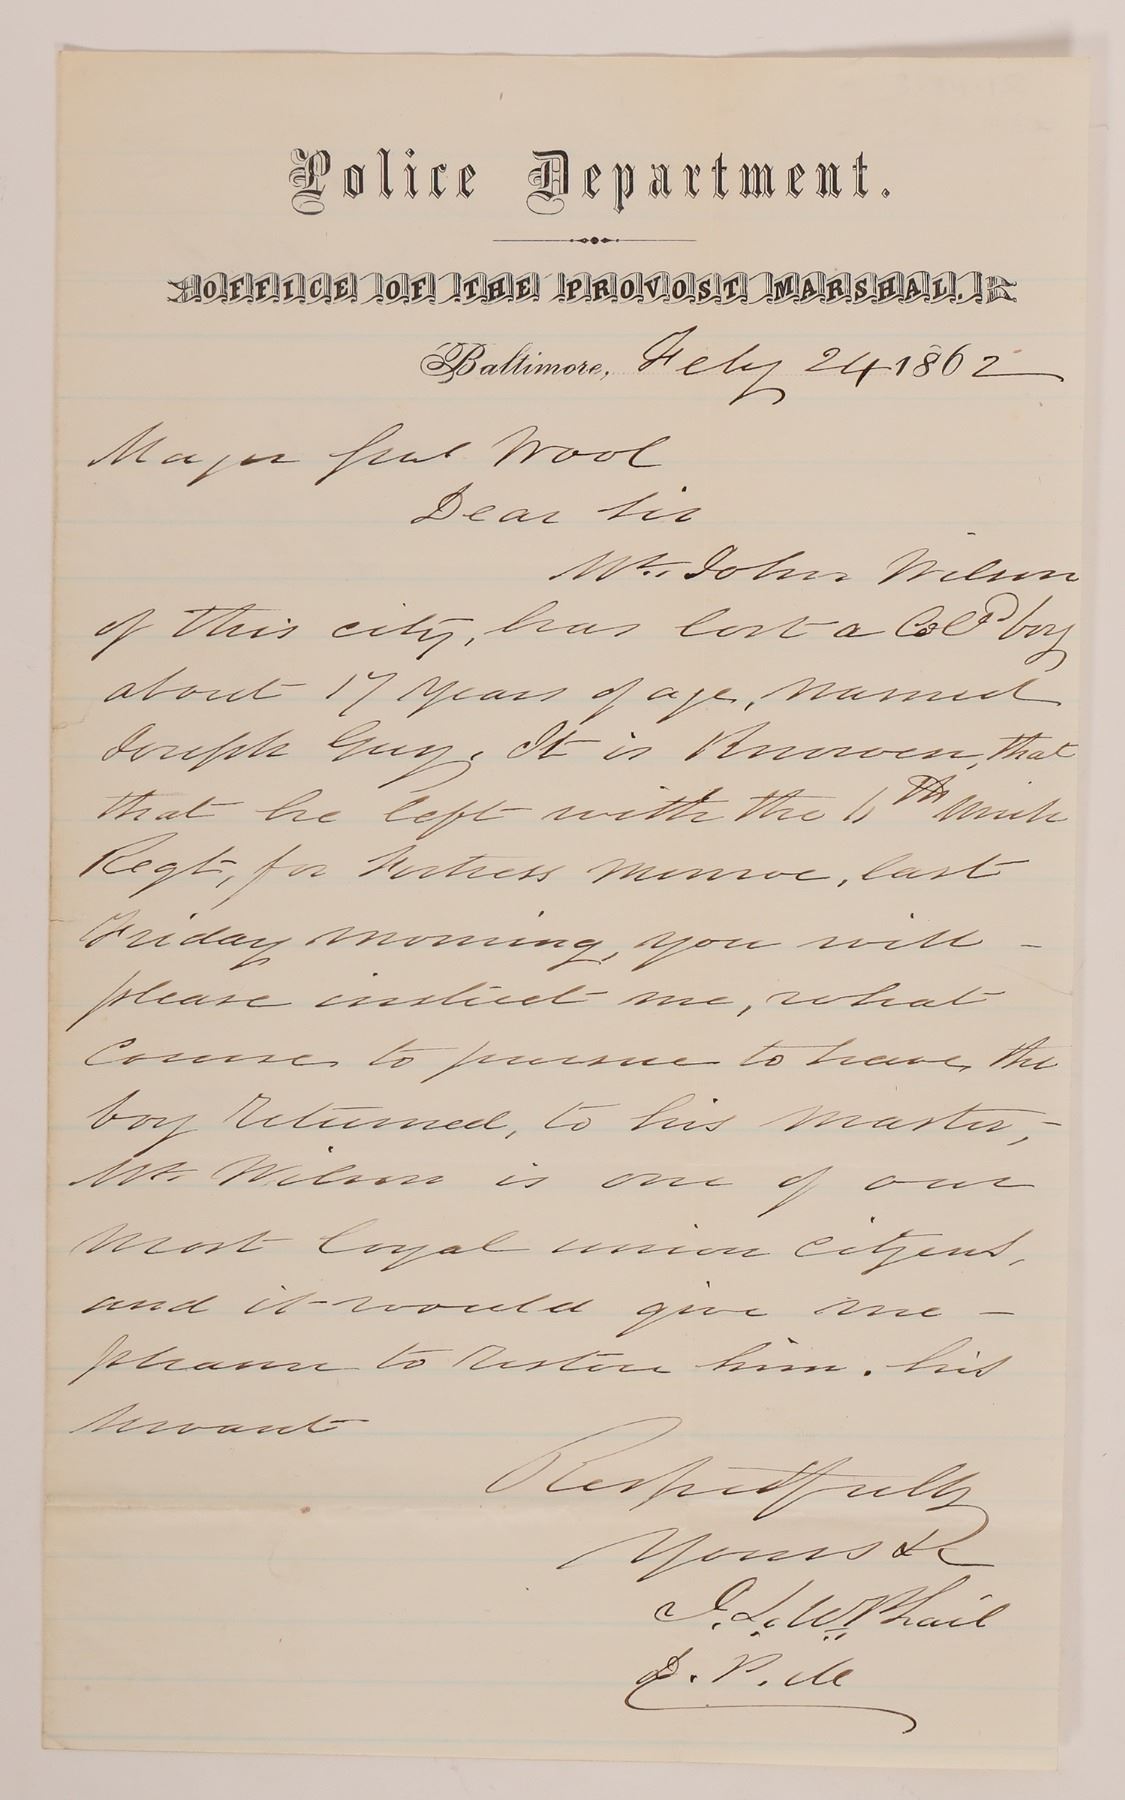 Police Department.
OFFICE OF THE PROVOST MARSHAL.
Baltimore, Feby 24 1862
Major Genl Wool
Dear Sir
Mr. John Wilson
of this city, has lost a Cold boy
about 17 years of age, named
Joseph Guy. It is Knowen, that
that he left with the 6th Mich
Regt, for Fortress Monroe, last
Friday morning, you will -
please instruct me, what
course to pursue to have the
boy returned, to his master, -
Mr. Wilson is one of our
most loyal union citizens,
and it would give me -
pleasure to restore him. his
servant
Respectfully
Yours &c
J. L. McPhail
D. P. M